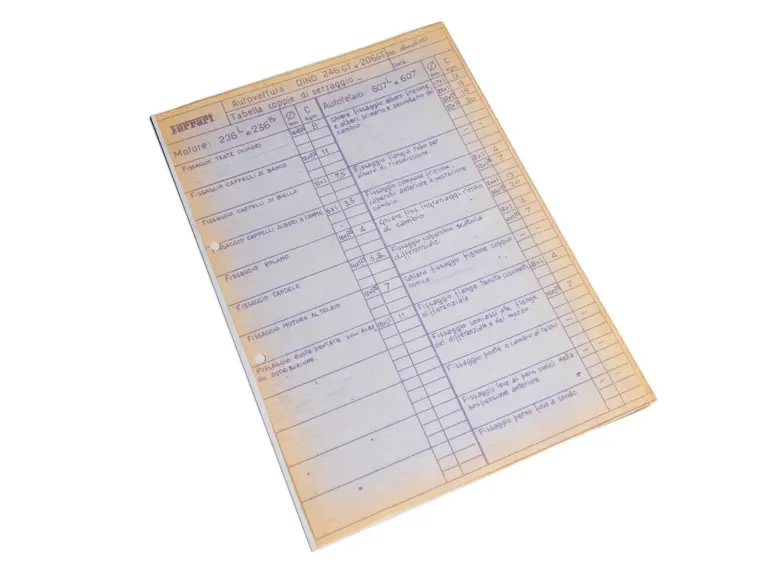 Ferrari
Autovettura: DINO 246 GT e 206GT
Tabella coppie di serraggio
Data:
Motore: 236L e 236B
Ø mm
C kgm
Autotelaio: 607L e 607
Ø mm
C kgm
FISSAGGIO TESTE CILINDRI
8
FISSAGGIO CAPPELLI DI BANCO
11
FISSAGGIO CAPPELLI DI BIELLA
7,5
FISSAGGIO CAPPELLI ALBERI A CAMME
8x1
3,3
FISSAGGIO VOLANO
4
FISSAGGIO CANDELE
3,8
FISSAGGIO MOTORE AL TELAIO
7
FISSAGGIO RUOTE DENTATE SULL'ALBERO
DI DISTRIBUZIONE.
11
Ghiere fissaggio alberi frizione
e alberi primario e secondario del
cambio.
12
19
20
Fissaggio flangia tubo per
albero di trasmissione.
Fissaggio campana frizione,
coperchi anteriore e posteriore
cambio.
8x1
4
7
Ghiere fiss. ingranaggi rinvio
di cambio
20
Fissaggio coperchio scatola
differenziale.
8x1
4
7
Ghiera fissaggio pignone coppia
conica
Fissaggio flange tenuta cuscinetti
differenziale
8x1
4
Fissaggio semiassi alle flange
del differenziale e del mozzo
7
Fissaggio ponte o cambio al telaio
Fissaggio leve ai perni conici della
sospensione anteriore
Fissaggio perno fuso a snodo